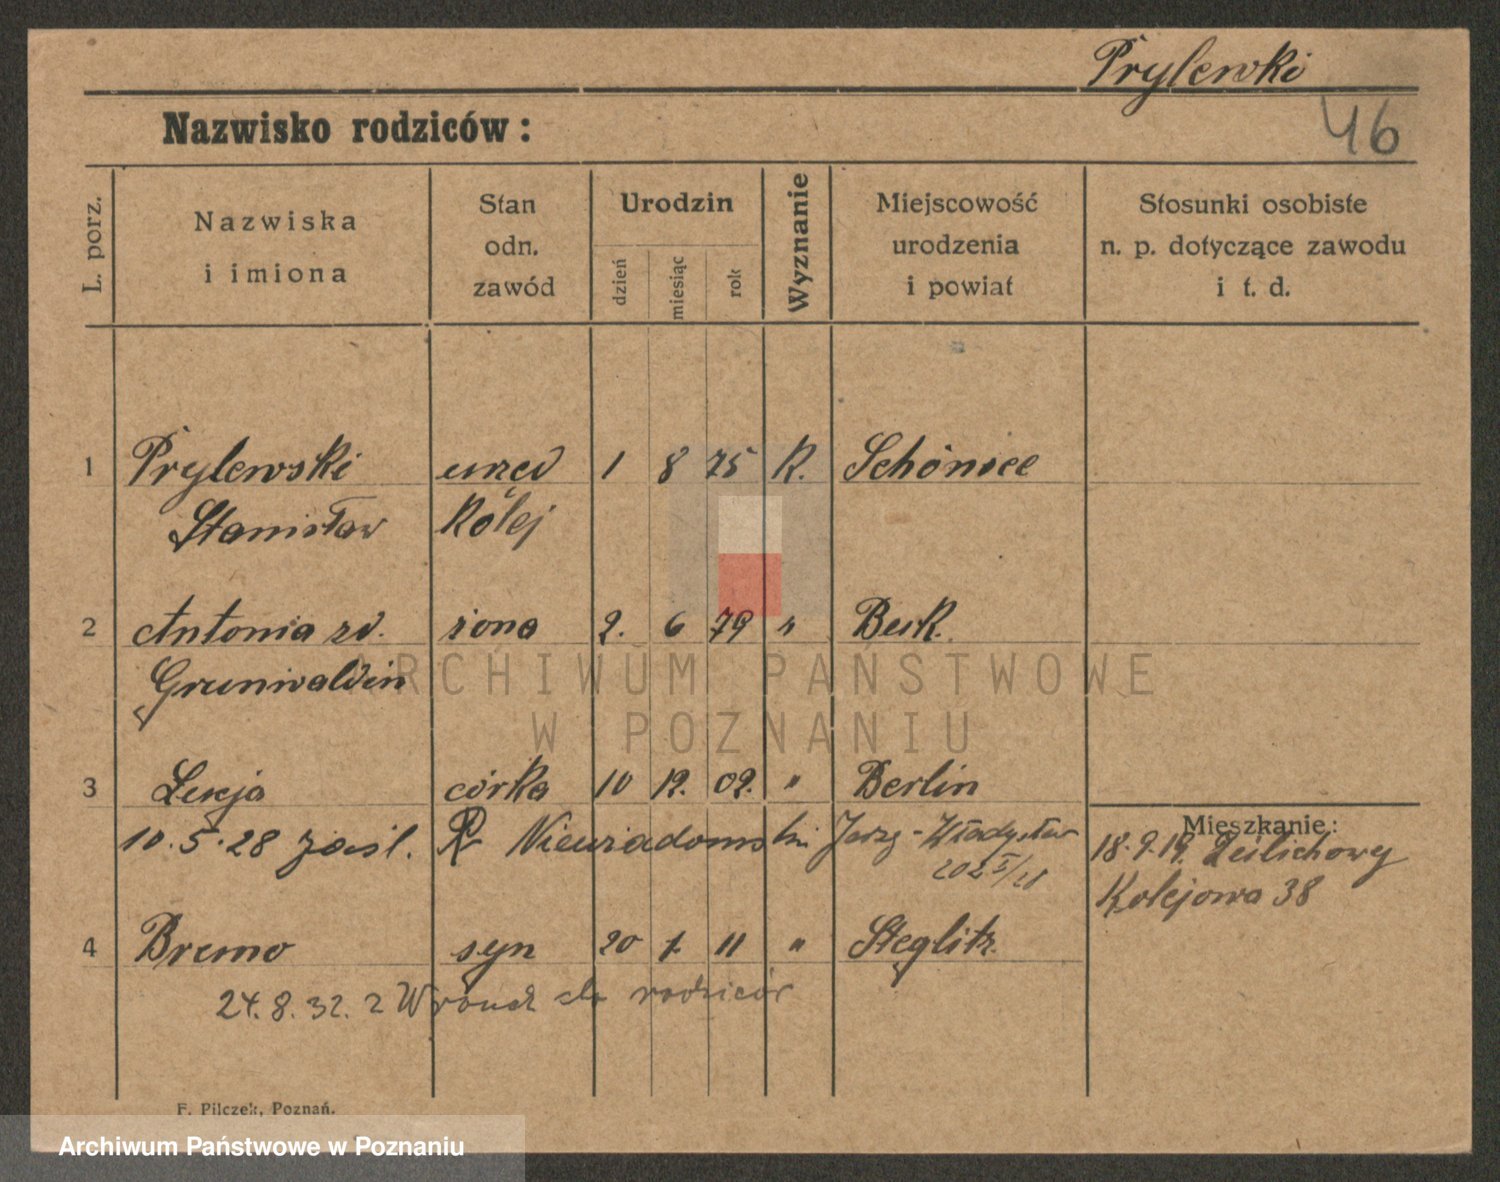 Prylewki
46
Nazwisko rodziców:
L. porz.
Nazwiska
i imiona
Stan
odn.
zawód
Urodzin
dzień
miesiąc
rok
Wyznanie
Miejscowość
urodzenia
i powiat
Stosunki osobiste
n. p. dotyczące zawodu
i t. d.
1 Prylewski urzęd 1 8 75 K.
Stanisław Kolej
2 Antonia zd. żona 2. 6 79 "
Grunwaldin
3 Łucja córka 10 12. 02. " Berlin
10.5.28 zaśl. Jerzy-Władysław
Mieszkanie:
18.9.19.
Kolejowa 38
4 Bruno syn 20 1. 11 " Steglitz
24.8.32. z do rodziców
F. Pilczek, Poznań.
ARCHIWUM PAŃSTWOWE
W POZNANIU
Archiwum Państwowe w Poznaniu